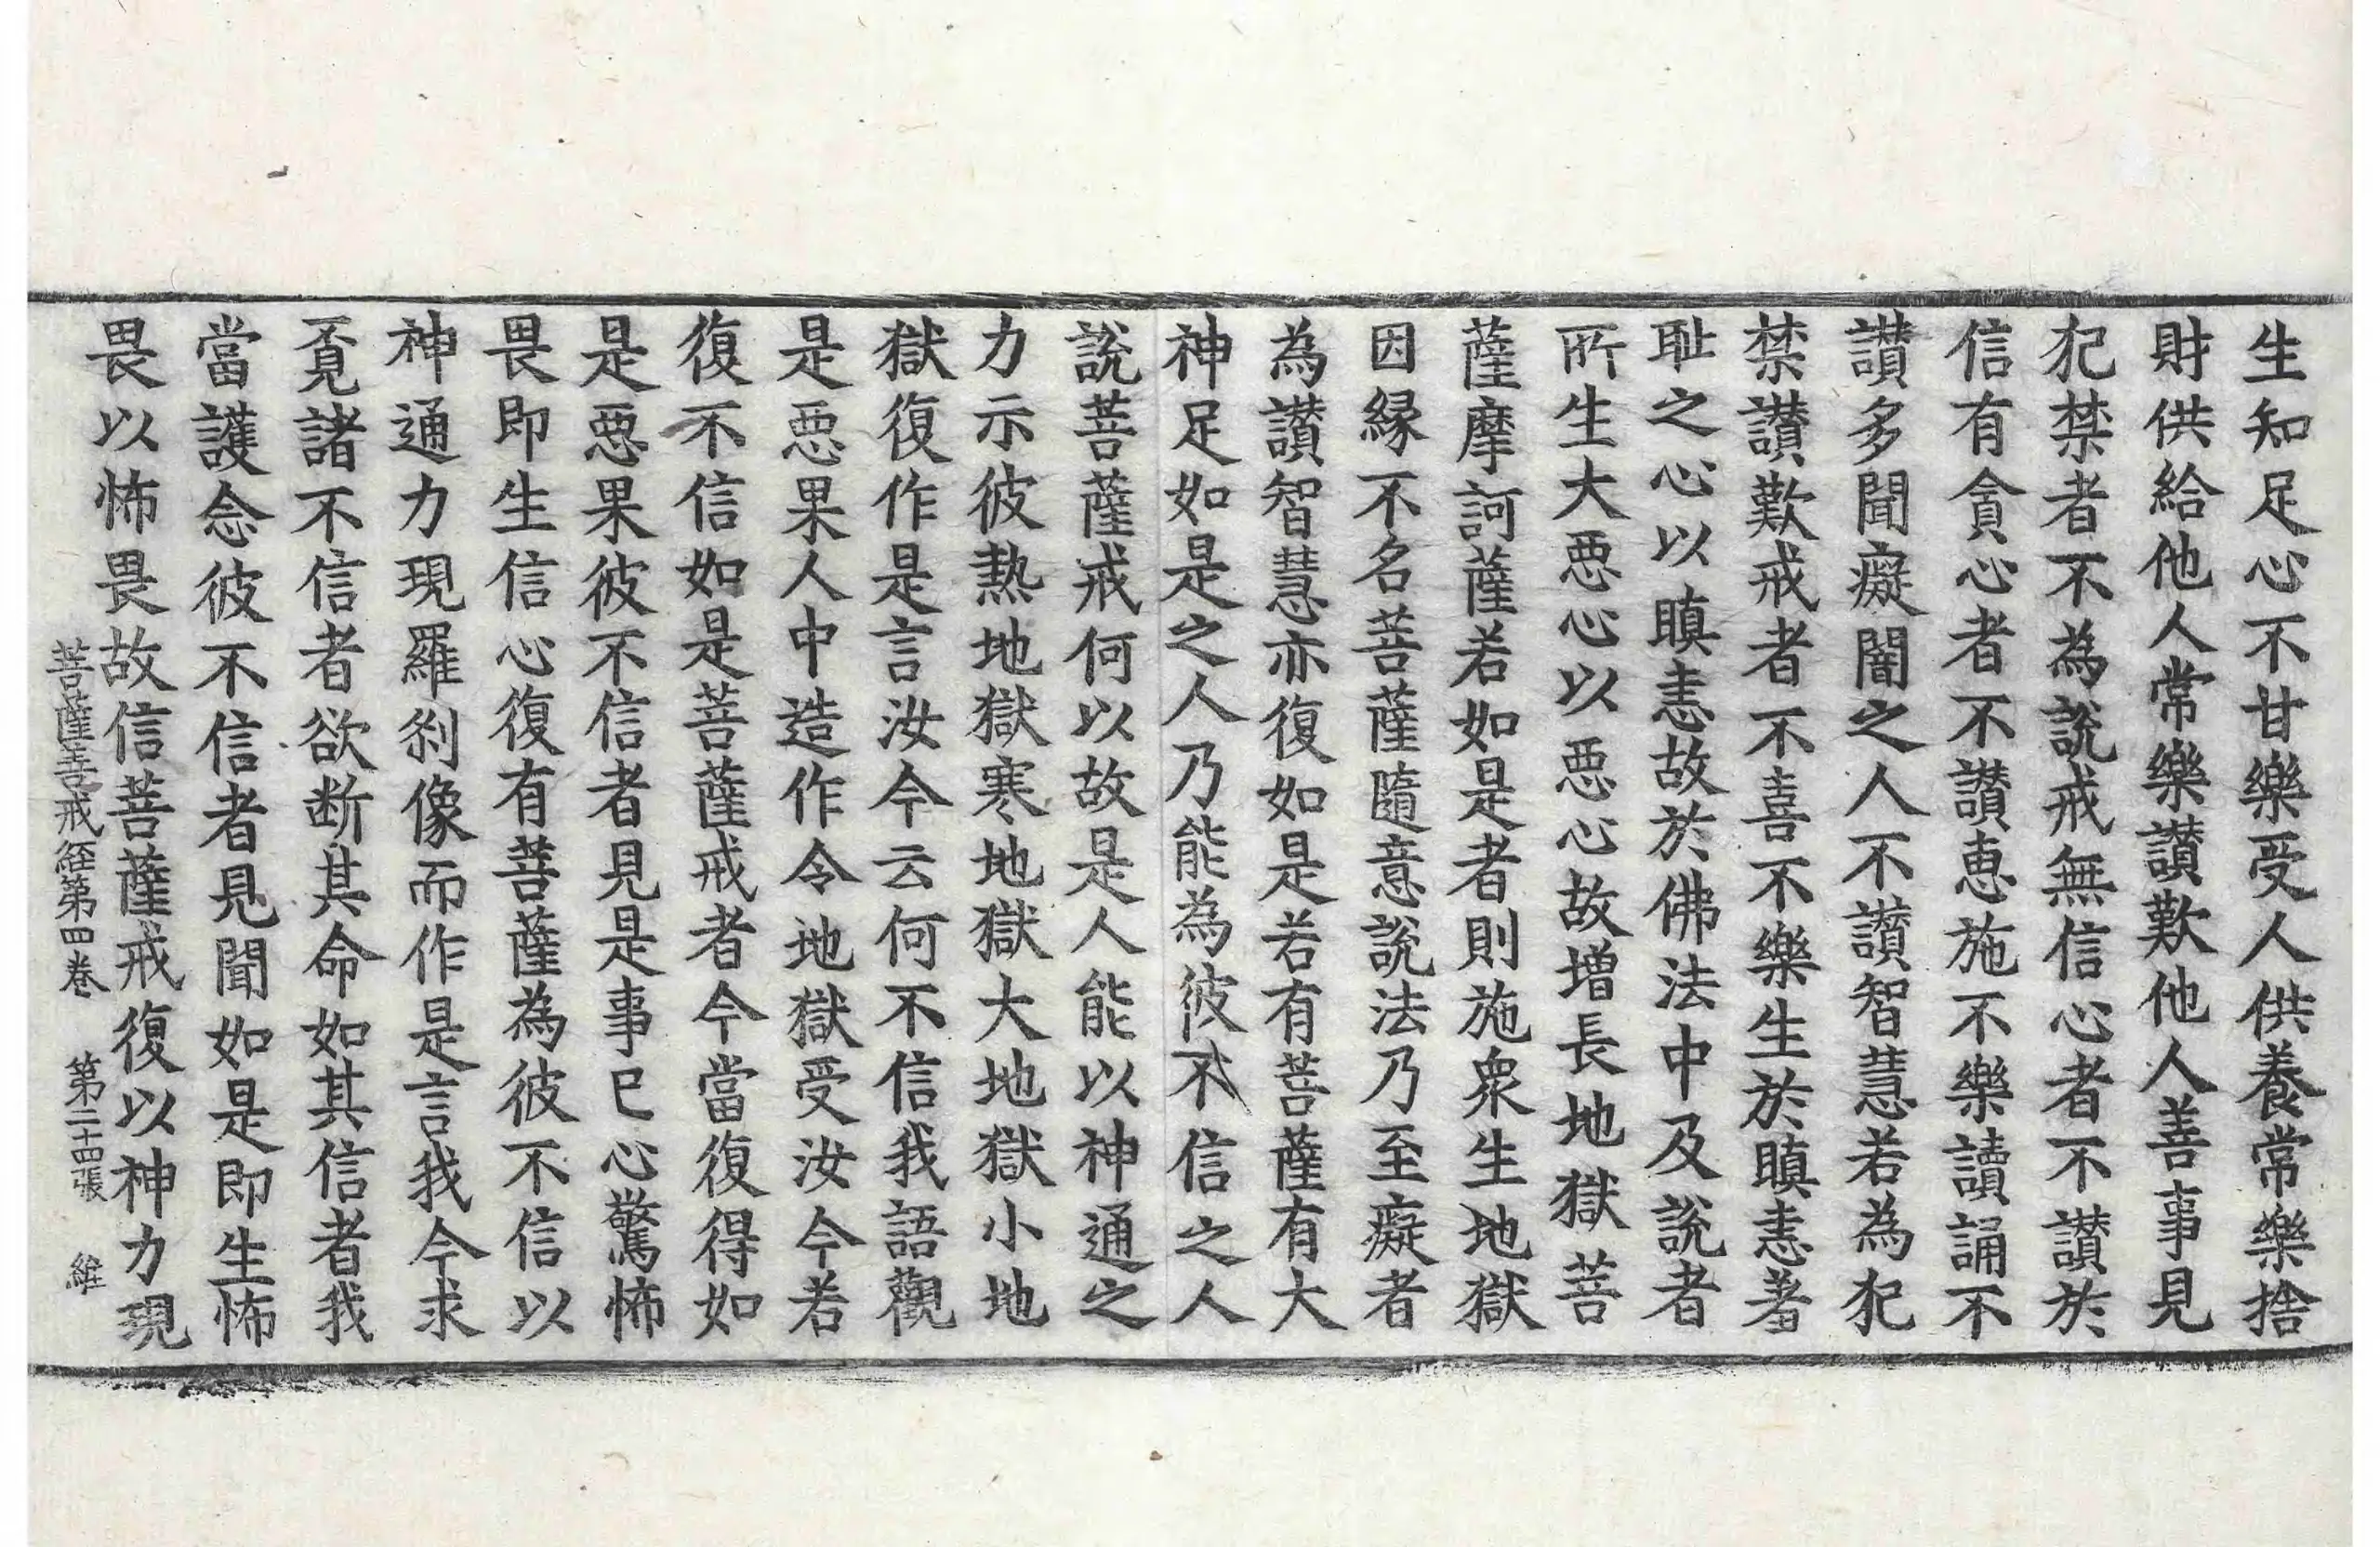 生知足心不甘樂受人供養常樂捨
財供給他人常樂讃歎他人善事見
犯禁者不為說戒無信心者不讃於
信有貪心者不讃恵施不樂讀誦不
讃多聞癡闇之人不讃智慧若為犯
禁讃歎戒者不喜不樂生於瞋恚羞
耻之心以瞋恚故於佛法中及說者
所生大惡心以惡心故増長地獄菩
薩摩訶薩若如是者則施衆生地獄
因縁不名菩薩隨意說法乃至癡者
為讃智慧亦復如是若有菩薩有大
神足如是之人乃能為彼不信之人
說菩薩戒何以故是人能以神通之
力示彼熱地獄寒地獄大地獄小地
獄復作是言汝今云何不信我語觀
是惡果人中造作令地獄受汝今若
復不信如是菩薩戒者今當復得如
是惡果彼不信者見是事已心驚怖
畏即生信心復有菩薩為彼不信以
神通力現羅剎像而作是言我今求
覔諸不信者欲断其命如其信者我
當護念彼不信者見聞如是即生怖
畏以怖畏故信菩薩戒復以神力現
菩薩善戒經第四卷 第二十四張 維